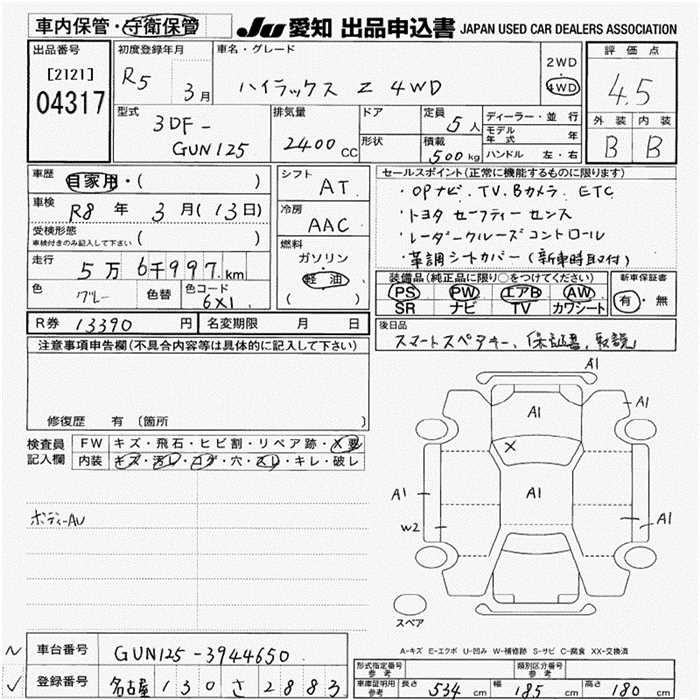 車内保管・守衛保管 JU 愛知 出品申込書 JAPAN USED CAR DEALERS ASSOCIATION
出品番号
[2121]
04317
初度登録年月
R5 3月
車名・グレード
ハイラックス Z 4WD
2WD
・
4WD
評価点
4.5
外装 内装
B B
型式
3DF-
GUN125
排気量
2400 CC
ドア
形状
定員 5 人
積載 500 kg
ディーラー・並行
モデル年式 年
ハンドル 左・右
車歴 自家用・( )
車検 R8 年 3 月 (13日)
受検形態
車検付きのみ記入して下さい ( )
走行 5万6千997 km
色 グレー 色替 色コード 6X1
シフト AT
冷房 AAC
燃料
ガソリン
軽油
( )
セールスポイント(正常に機能するものに限ります)
・OPナビ. TV. Bカメラ. ETC
・トヨタ セーフティーセンス
・レーダークルーズコントロール
・革調シートカバー(新車時取付)
装備品(純正品に限り○をつけてください)
PS PW エアB AW
SR ナビ TV カワシート
新車保証書
有・無
R券 13390 円 名変期限 月 日
後日品
スマートスペアキー、保証書、取説
注意事項申告欄(不具合内容等は具体的に記入して下さい)
修復歴 有 〔箇所 〕
検査員記入欄
FW キズ・飛石・ヒビ割・リペア跡・X要
内装 キズ・汚レ・コゲ・穴・スレ・キレ・破レ
ボディーAU
A1
A1
A1
X
A1
A1
A1
W2
スペア
A-キズ E-エクボ U-凹み W-補修跡 S-サビ C-腐食 XX-交換済
車台番号 GUN125-3944650
登録番号 名古屋 130 さ 2883
形式指定番号 参考
類別区分番号 参考
車庫証明用 参考 長さ 534 cm 幅 185 cm 高さ 180 cm